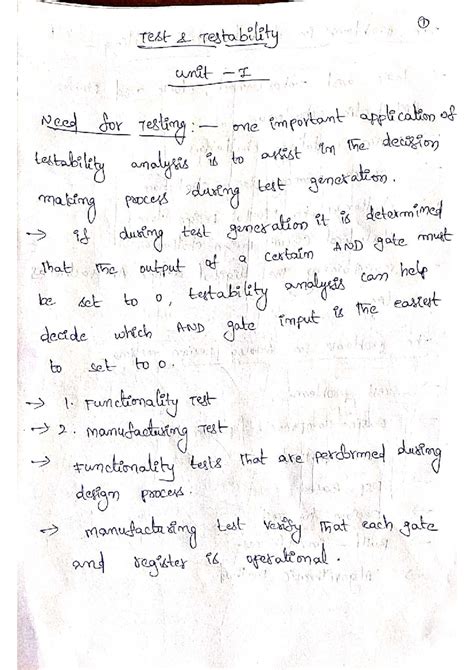 ①
Test & Testability
Unit - I
Need for Testing :- one important application of
testability analysis is to assist in the decision
making process during test generation.
→ if during test generation it is determined
that the output of a certain AND gate must
be set to 0, testability analysis can help
decide which AND gate input is the easiest
to set to 0.
→ 1. Functionality Test
→ 2. manufacturing Test
→ Functionality tests that are performed during
design process.
→ manufacturing test verify that each gate
and register is operational.